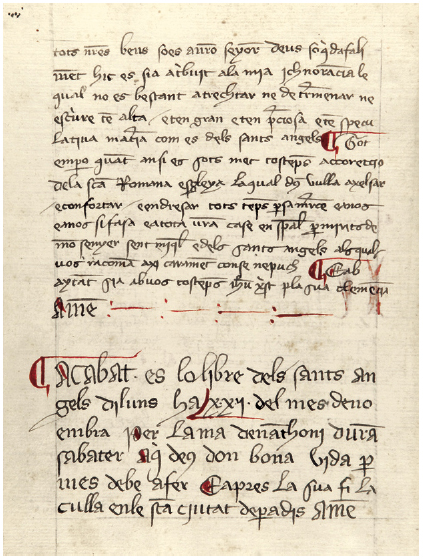 tots mes bens so es a nro senyor deus so q defali
ment hic es sia atbuit ala mia ichnorancia le
qual no es bestant a trechtar ne determenar ne
escriure te alta e ten gran e ten pciosa e te specu
lativa materia com es dels sants angels Tot
empo quant ansi es sots mes tosteps a correctio
dela sca Romana esgleya laqual deu vulla axelsar
e confortar e endresar tots teps
e mos si fasa e atota vra case en spal p merits de
mo senyer sent miql e dels sants angels als qual
vos racoman axi carament con se nepuch E ab
aytant sia ab vos tosteps ihu xst p la sua clemecia
Ame
Acabat es lo libre dels sants an
gels diluns ha XXI del mes de no
embra per la ma den athoni dura
sabater Aq deus don bona vida p
mes debe afer E apres la sua fi la
culla en le sca ciutat de paradis Ame